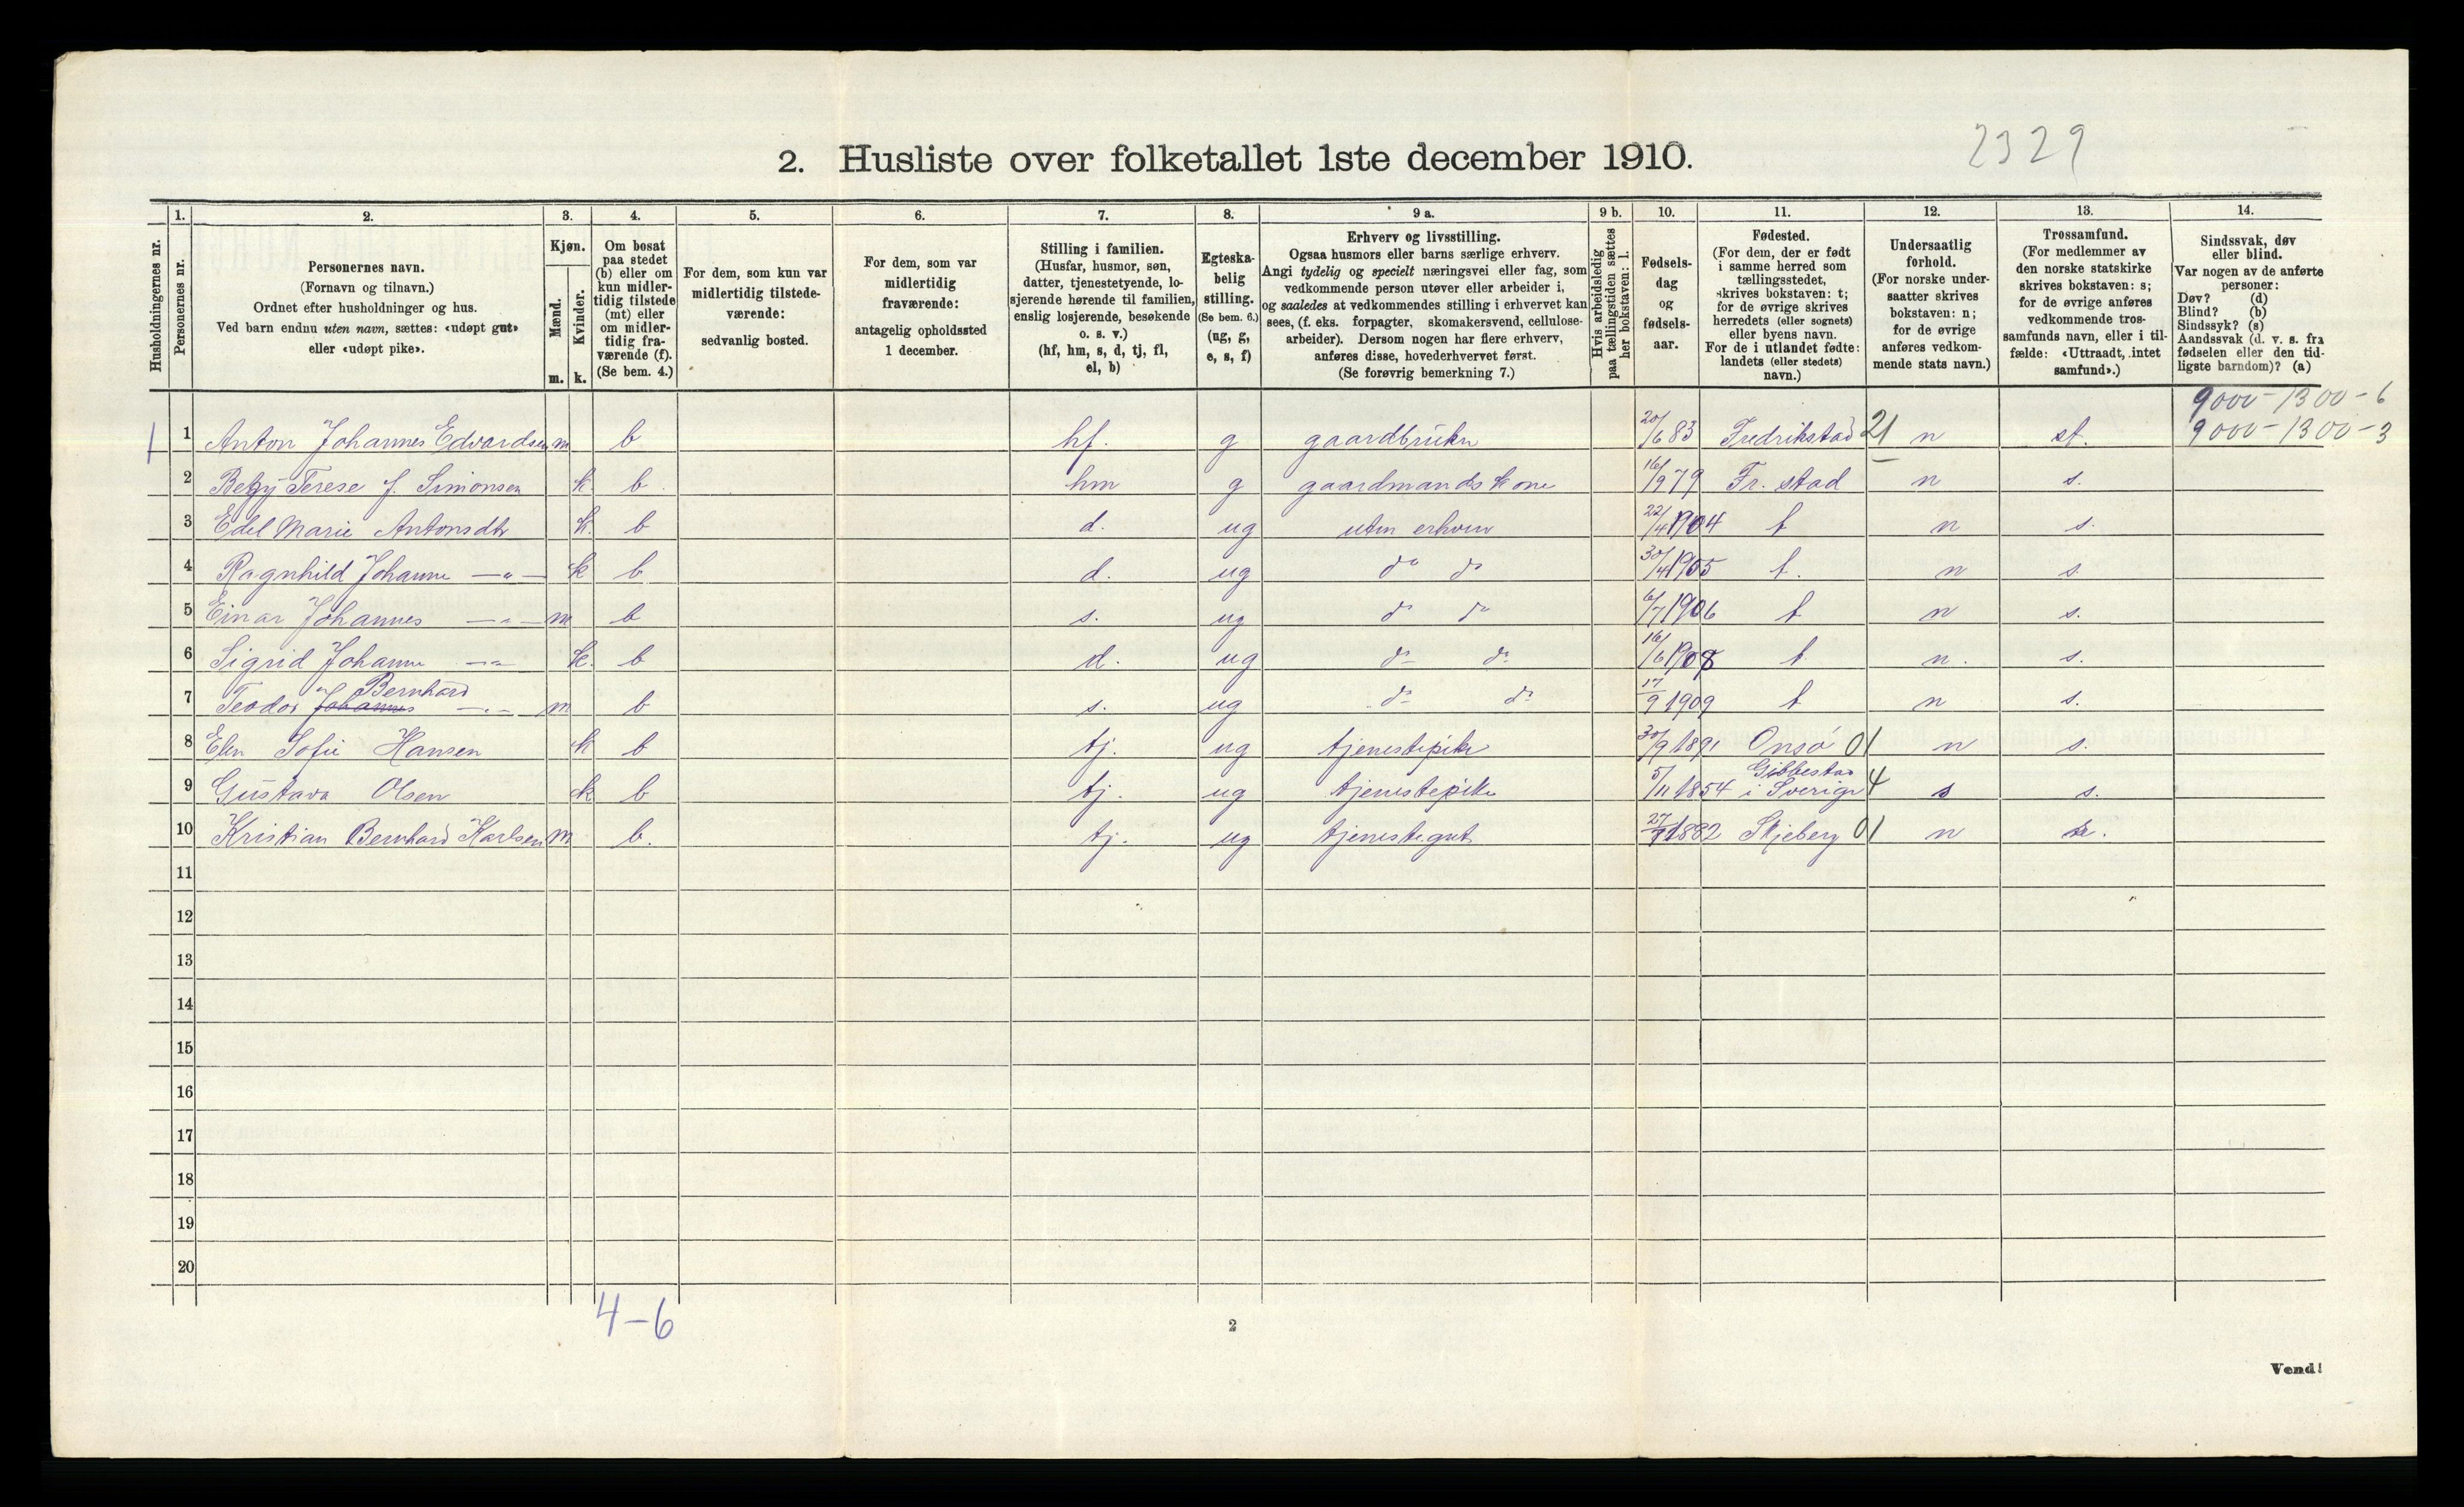 2329
2. Husliste over folketallet 1ste december 1910.
1. 2. 3. 4. 5. 6. 7. 8. 9 a. 9 b. 10. 11. 12. 13. 14.
Husholdningernes nr.
Personernes nr.
Personernes navn.
(Fornavn og tilnavn.)
Ordnet efter husholdninger og hus.
Ved barn endnu uten navn, sættes: «udøpt gut»
eller «udøpt pike».
Kjøn.
Mænd.
Kvinder.
m. k.
Om bosat
paa stedet
(b) eller om
kun midler-
tidig tilstede
(mt) eller
om midler-
tidig fra-
værende (f).
(Se bem. 4.)
For dem, som kun var
midlertidig tilstede-
værende:
sedvanlig bosted.
For dem, som var
midlertidig
fraværende:
antagelig opholdssted
1 december.
Stilling i familien.
(Husfar, husmor, søn,
datter, tjenestetyende, lo-
sjerende hørende til familien,
enslig losjerende, besøkende
o. s. v.)
(hf, hm, s, d, tj, fl,
el, b)
Egteska-
belig
stilling.
(Se bem. 6.)
(ug, g,
e, s, f)
Erhverv og livsstilling.
Ogsaa husmors eller barns særlige erhverv.
Angi tydelig og specielt næringsvei eller fag, som
vedkommende person utøver eller arbeider i,
og saaledes at vedkommendes stilling i erhvervet kan
sees, (f. eks. forpagter, skomakersvend, cellulose-
arbeider). Dersom nogen har flere erhverv,
anføres disse, hovederhvervet først.
(Se forøvrig bemerkning 7.)
Hvis arbeidsledig
paa tællingstiden sættes
her bokstaven: l.
Fødsels-
dag
og
fødsels-
aar.
Fødested.
(For dem, der er født
i samme herred som
tællingsstedet,
skrives bokstaven: t;
for de øvrige skrives
herredets (eller sognets)
eller byens navn.
For de i utlandet fødte:
landets (eller stedets)
navn.)
Undersaatlig
forhold.
(For norske under-
saatter skrives
bokstaven: n;
for de øvrige
anføres vedkom-
mende stats navn.)
Trossamfund.
(For medlemmer av
den norske statskirke
skrives bokstaven: s;
for de øvrige anføres
vedkommende tros-
samfunds navn, eller i til-
fælde: «Uttraadt, intet
samfund».)
Sindssvak, døv
eller blind.
Var nogen av de anførte
personer:
Døv? (d)
Blind? (b)
Sindssyk? (s)
Aandssvak (d. v. s. fra
fødselen eller den tid-
ligste barndom)? (a)
9000-1300-6
1 1 Anton Johannes Edvardsen m b hf. g gaardbruker 20/6 83 Fredrikstad 21 n st. 9000-1300-3
2 Betzy Terese f. Simonsen k. b. hm g gaardmandskone 16/9 79 Fr. stad n s.
3 Edel Marie Antonsdtr k. b d. ug uten erhverv 22/4 1904 t n s.
4 Ragnhild Johanne —„— k b d. ug do do 30/4 1905 t. n s.
5 Einar Johannes —„— m b s. ug do do 6/7 1906 t n s.
6 Sigrid Johanne —„— k. b d. ug do do 16/6 1908 t n. s.
Bernhard
7 Teodor Johannes —„— m b s. ug do do 17/9 1909 t n s.
8 Elen Sofie Hansen k b tj. ug tjenestepike 30/9 1891 Onsø 01 n s.
Gibbestad
9 Gustava Olsen k b tj. ug tjenestepike 5/11 1854 i Sverige 4 s s.
10 Kristian Bernhard Karlsen m b. tj. ug tjenestegut 27/7 1882 Skjeberg 01 n
11
12
13
14
15
16
17
18
19
20
4-6
2
Vend!